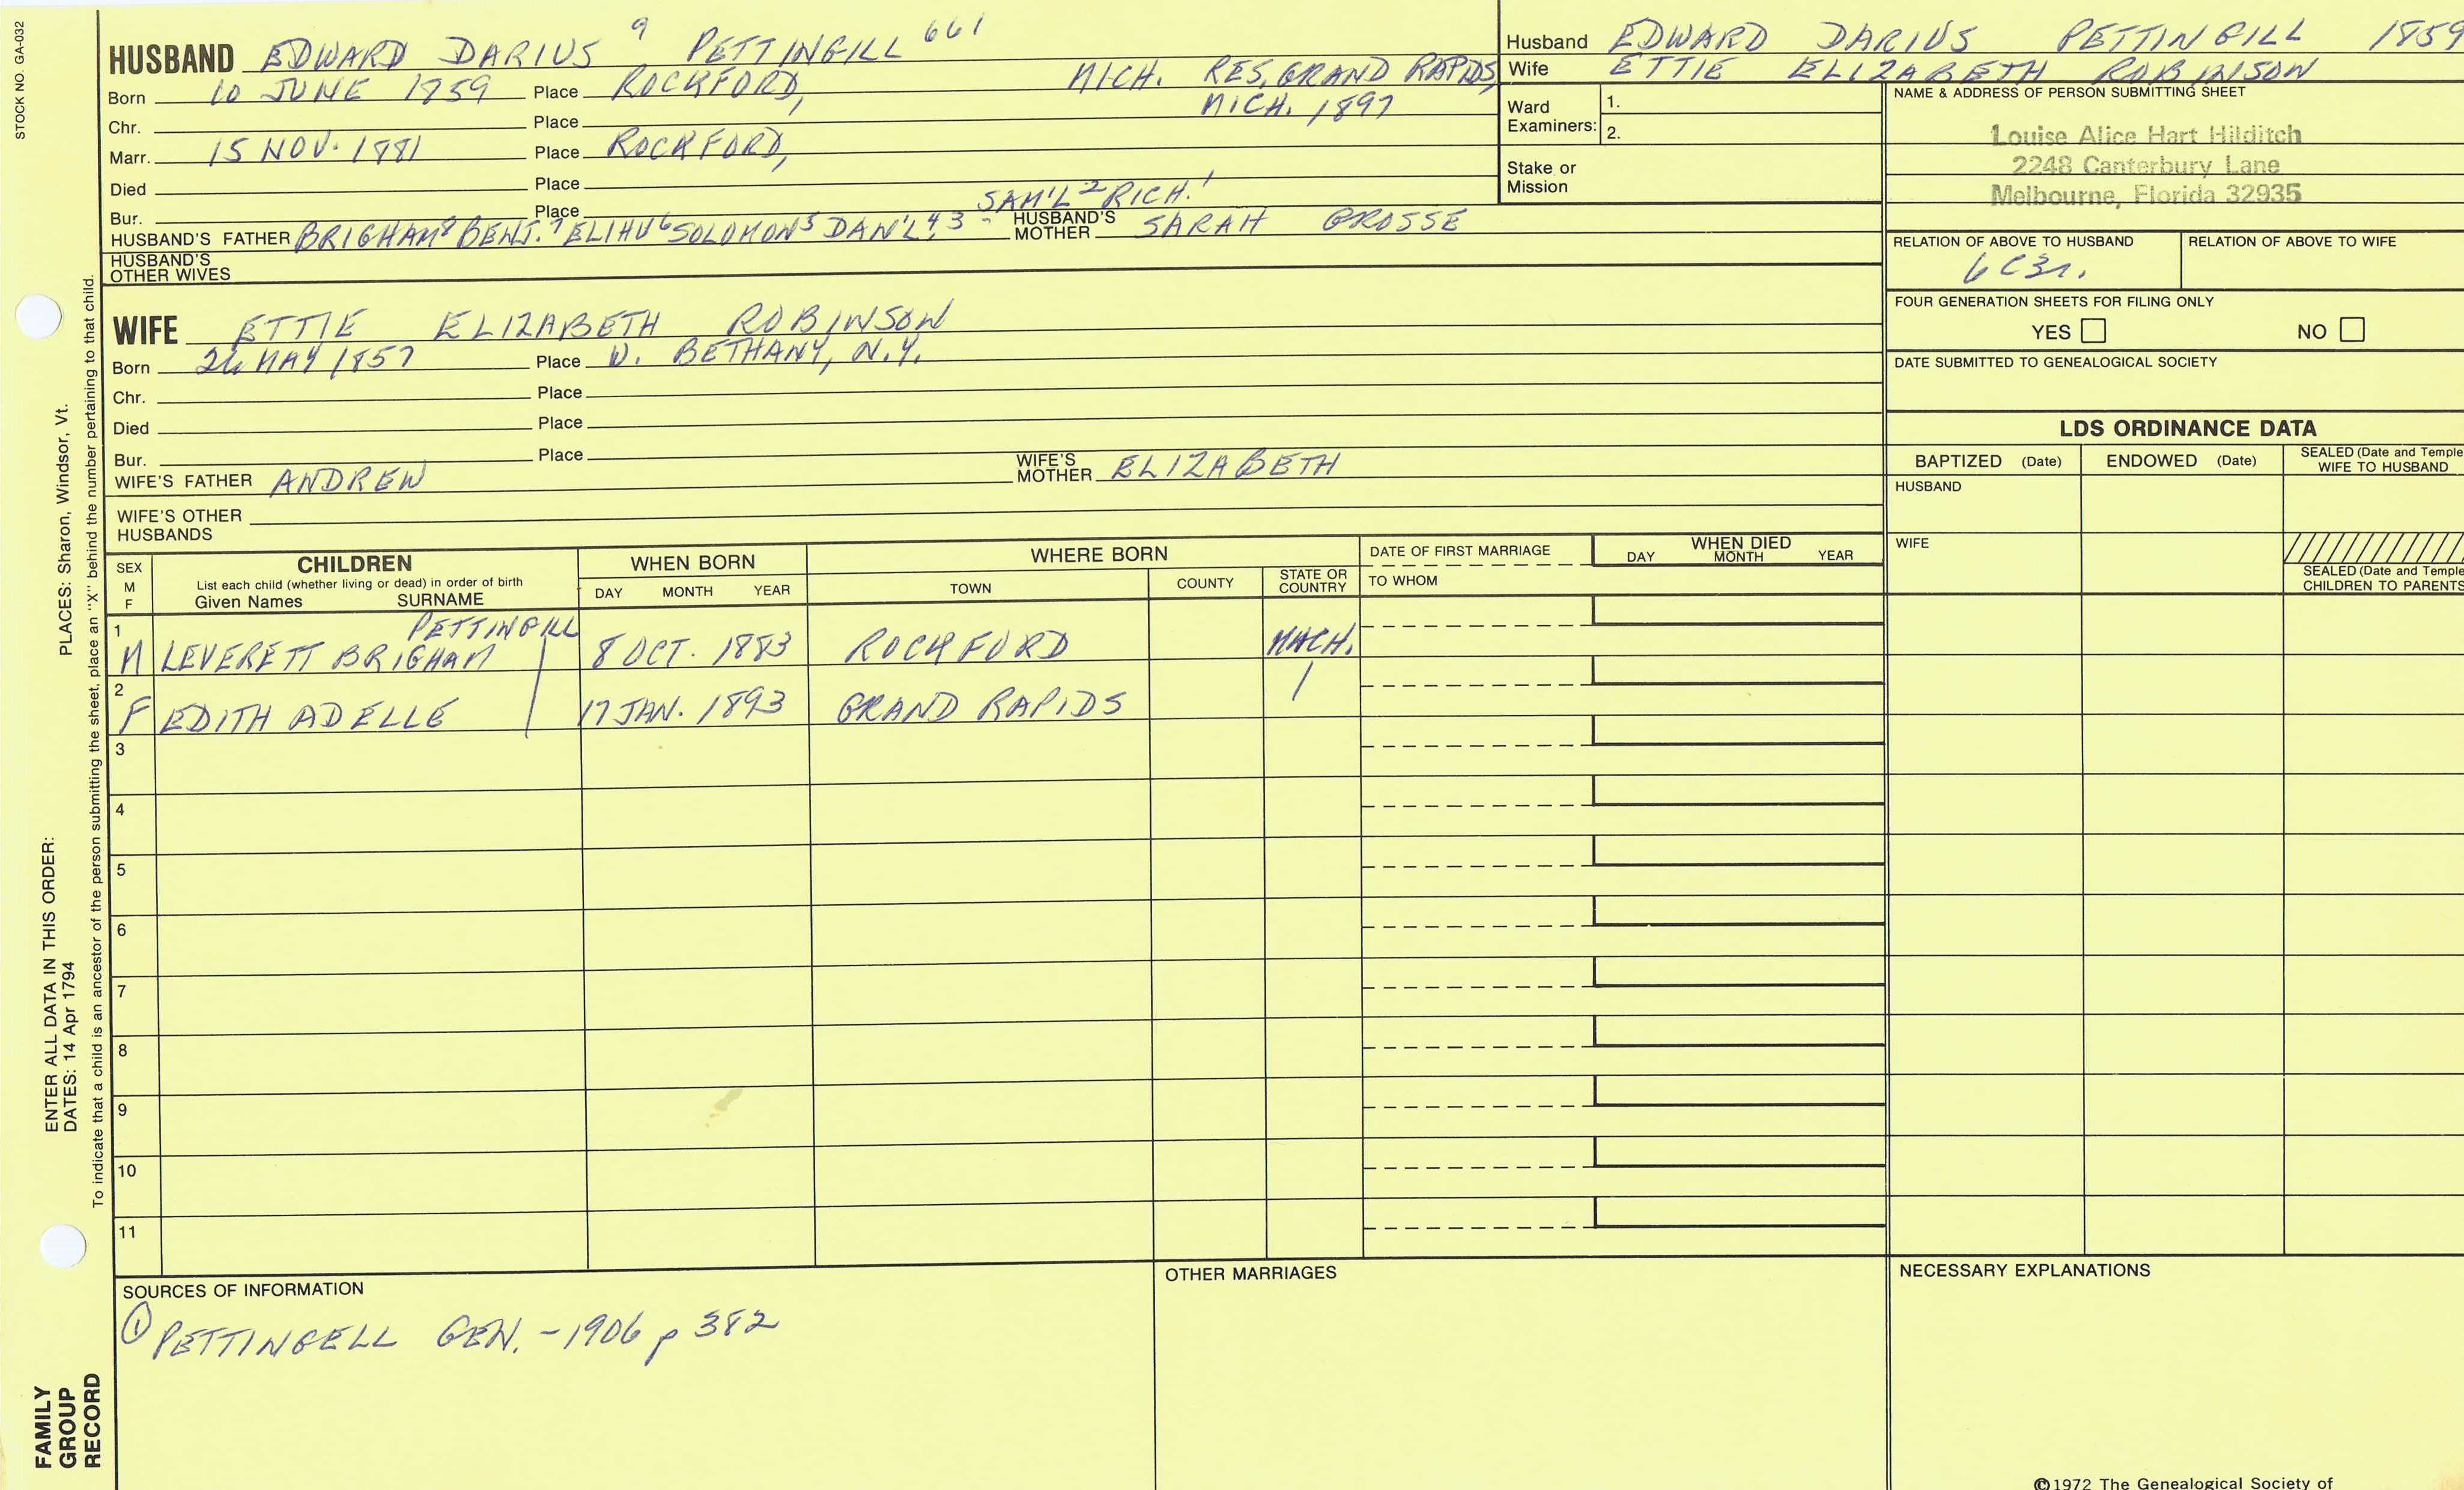 STOCK NO. GA-032
HUSBAND EDWARD DARIUS 9 PETTINGILL 661
Born 10 JUNE 1859 Place ROCKFORD, MICH. RES. GRAND RAPIDS,
MICH. 1897
Chr. Place
Marr. 15 NOV. 1881 Place ROCKFORD,
Died Place
Bur. Place SAM'L 2 RICH. 1
HUSBAND'S FATHER BRIGHAM 8 BENJ. 7 ELIHU 6 SOLOMON 5 DAN'L 4, 3 HUSBAND'S MOTHER SARAH GROSSE
HUSBAND'S OTHER WIVES
WIFE ETTIE ELIZABETH ROBINSON
Born 26 MAY 1857 Place W. BETHANY, N.Y.
Chr. Place
Died Place
Bur. Place
WIFE'S FATHER ANDREW WIFE'S MOTHER ELIZABETH
WIFE'S OTHER HUSBANDS
Husband EDWARD DARIUS PETTINGILL 1859
Wife ETTIE ELIZABETH ROBINSON
Ward Examiners: 1.
2.
Stake or Mission
NAME & ADDRESS OF PERSON SUBMITTING SHEET
Louise Alice Hart Hilditch
2248 Canterbury Lane
Melbourne, Florida 32935
RELATION OF ABOVE TO HUSBAND RELATION OF ABOVE TO WIFE
6C3r.
FOUR GENERATION SHEETS FOR FILING ONLY
YES NO
DATE SUBMITTED TO GENEALOGICAL SOCIETY
LDS ORDINANCE DATA
BAPTIZED (Date) ENDOWED (Date) SEALED (Date and Temple
WIFE TO HUSBAND
HUSBAND
WIFE
SEALED (Date and Temple
CHILDREN TO PARENTS
SEX M F CHILDREN WHEN BORN WHERE BORN DATE OF FIRST MARRIAGE WHEN DIED
List each child (whether living or dead) in order of birth
Given Names SURNAME DAY MONTH YEAR TOWN COUNTY STATE OR COUNTRY TO WHOM DAY MONTH YEAR
PETTINGILL
1 M LEVERETT BRIGHAM 8 OCT. 1883 ROCKFORD MICH.
2 F EDITH ADELLE 17 JAN. 1893 GRAND RAPIDS
3
4
5
6
7
8
9
10
11
SOURCES OF INFORMATION
① PETTINGELL GEN. - 1906 p 382
OTHER MARRIAGES
NECESSARY EXPLANATIONS
©1972 The Genealogical Society of
ENTER ALL DATA IN THIS ORDER:
DATES: 14 Apr 1794
PLACES: Sharon, Windsor, Vt.
To indicate that a child is an ancestor of the person submitting the sheet, place an "X" behind the number pertaining to that child.
FAMILY
GROUP
RECORD